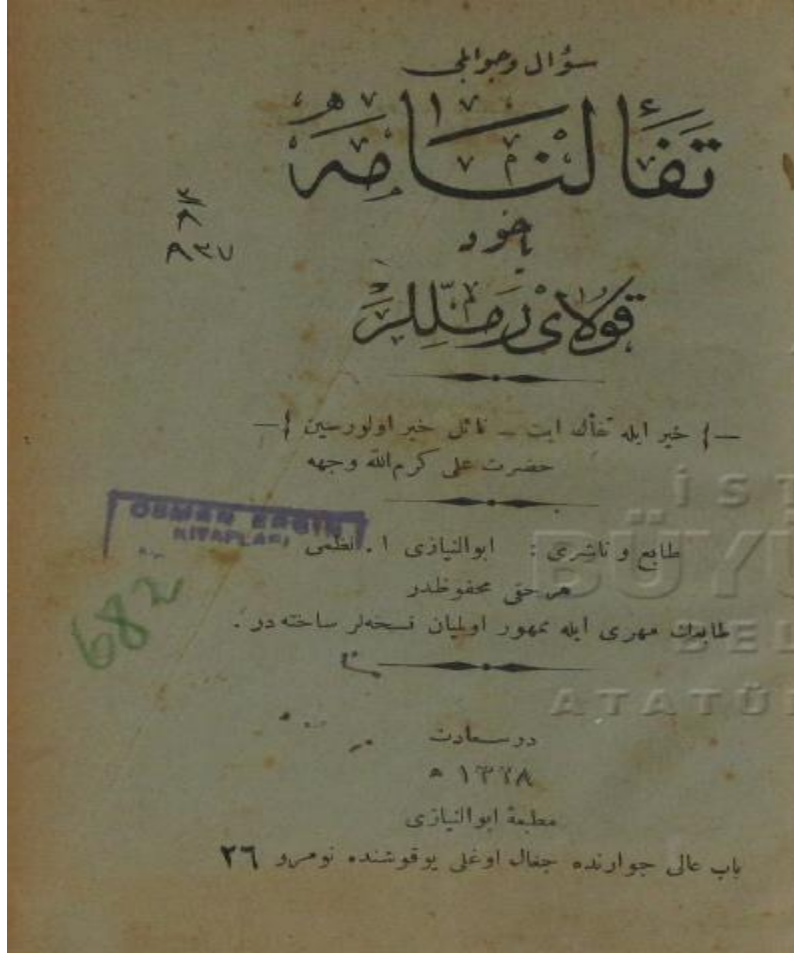 سؤال وجوابلی
تفألنامه
یاخود
قولای رمللر
خیر ایله تفأل ایت ــ نائل خیر اولورسین
حضرت علی کرم الله وجهه
OSMAN ERGİN
KİTAPLARI
طابع و ناشری : ابوالنیازی ا . نظمی
هر حقی محفوظدر
طابعك مهری ایله ممهور اولمیان نسخه‌لر ساخته در .
682
در سعادت
١٣٢٨
مطبعهٔ ابوالنیازی
باب عالی جوارنده جغال اوغلی یوقوشنده نومرو ٢٦
İST
BÜYÜ
BEL
ATATÜ